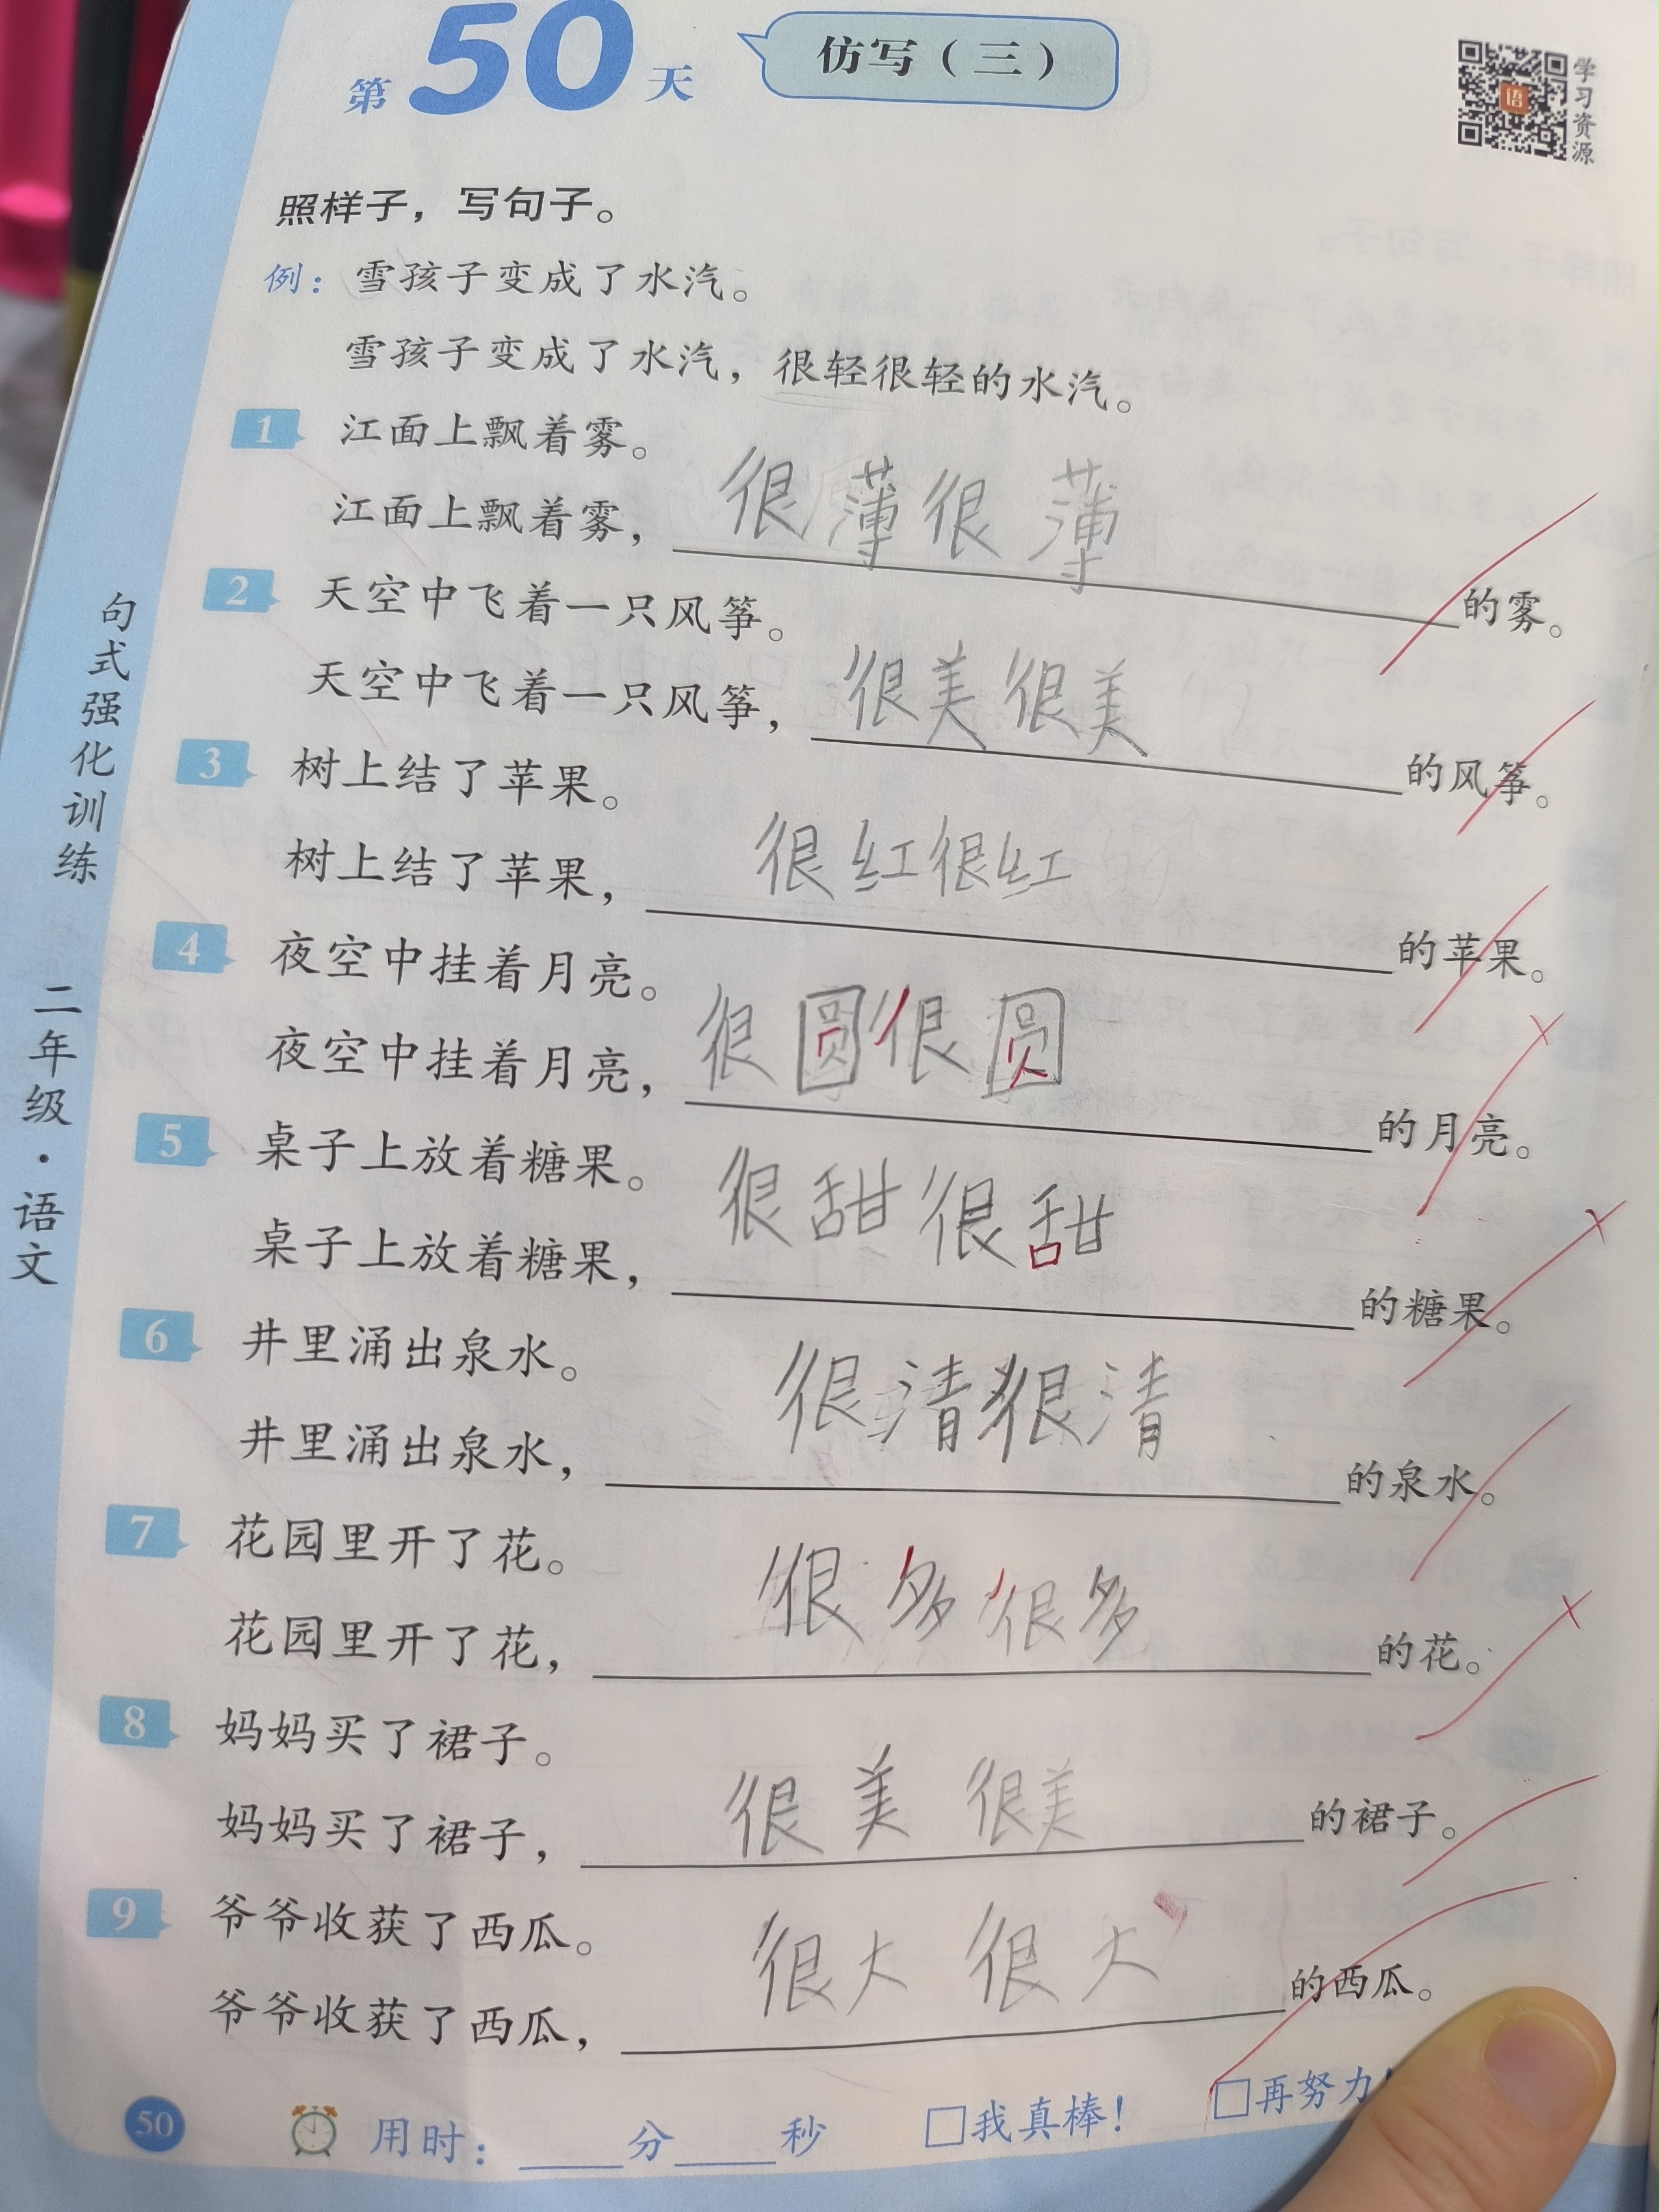 第50天
仿写（三）
学习资源
照样子，写句子。
例：雪孩子变成了水汽。
雪孩子变成了水汽，很轻很轻的水汽。
1 江面上飘着雾。
江面上飘着雾，很薄很薄的雾。
2 天空中飞着一只风筝。
天空中飞着一只风筝，很美很美的风筝。
3 树上结了苹果。
树上结了苹果，很红很红的苹果。
4 夜空中挂着月亮。
夜空中挂着月亮，很圆很圆的月亮。
5 桌子上放着糖果。
桌子上放着糖果，很甜很甜的糖果。
6 井里涌出泉水。
井里涌出泉水，很清很清的泉水。
7 花园里开了花。
花园里开了花，很多很多的花。
8 妈妈买了裙子。
妈妈买了裙子，很美很美的裙子。
9 爷爷收获了西瓜。
爷爷收获了西瓜，很大很大的西瓜。
句式强化训练 二年级·语文
50 用时：____分____秒 □我真棒！ □再努力！